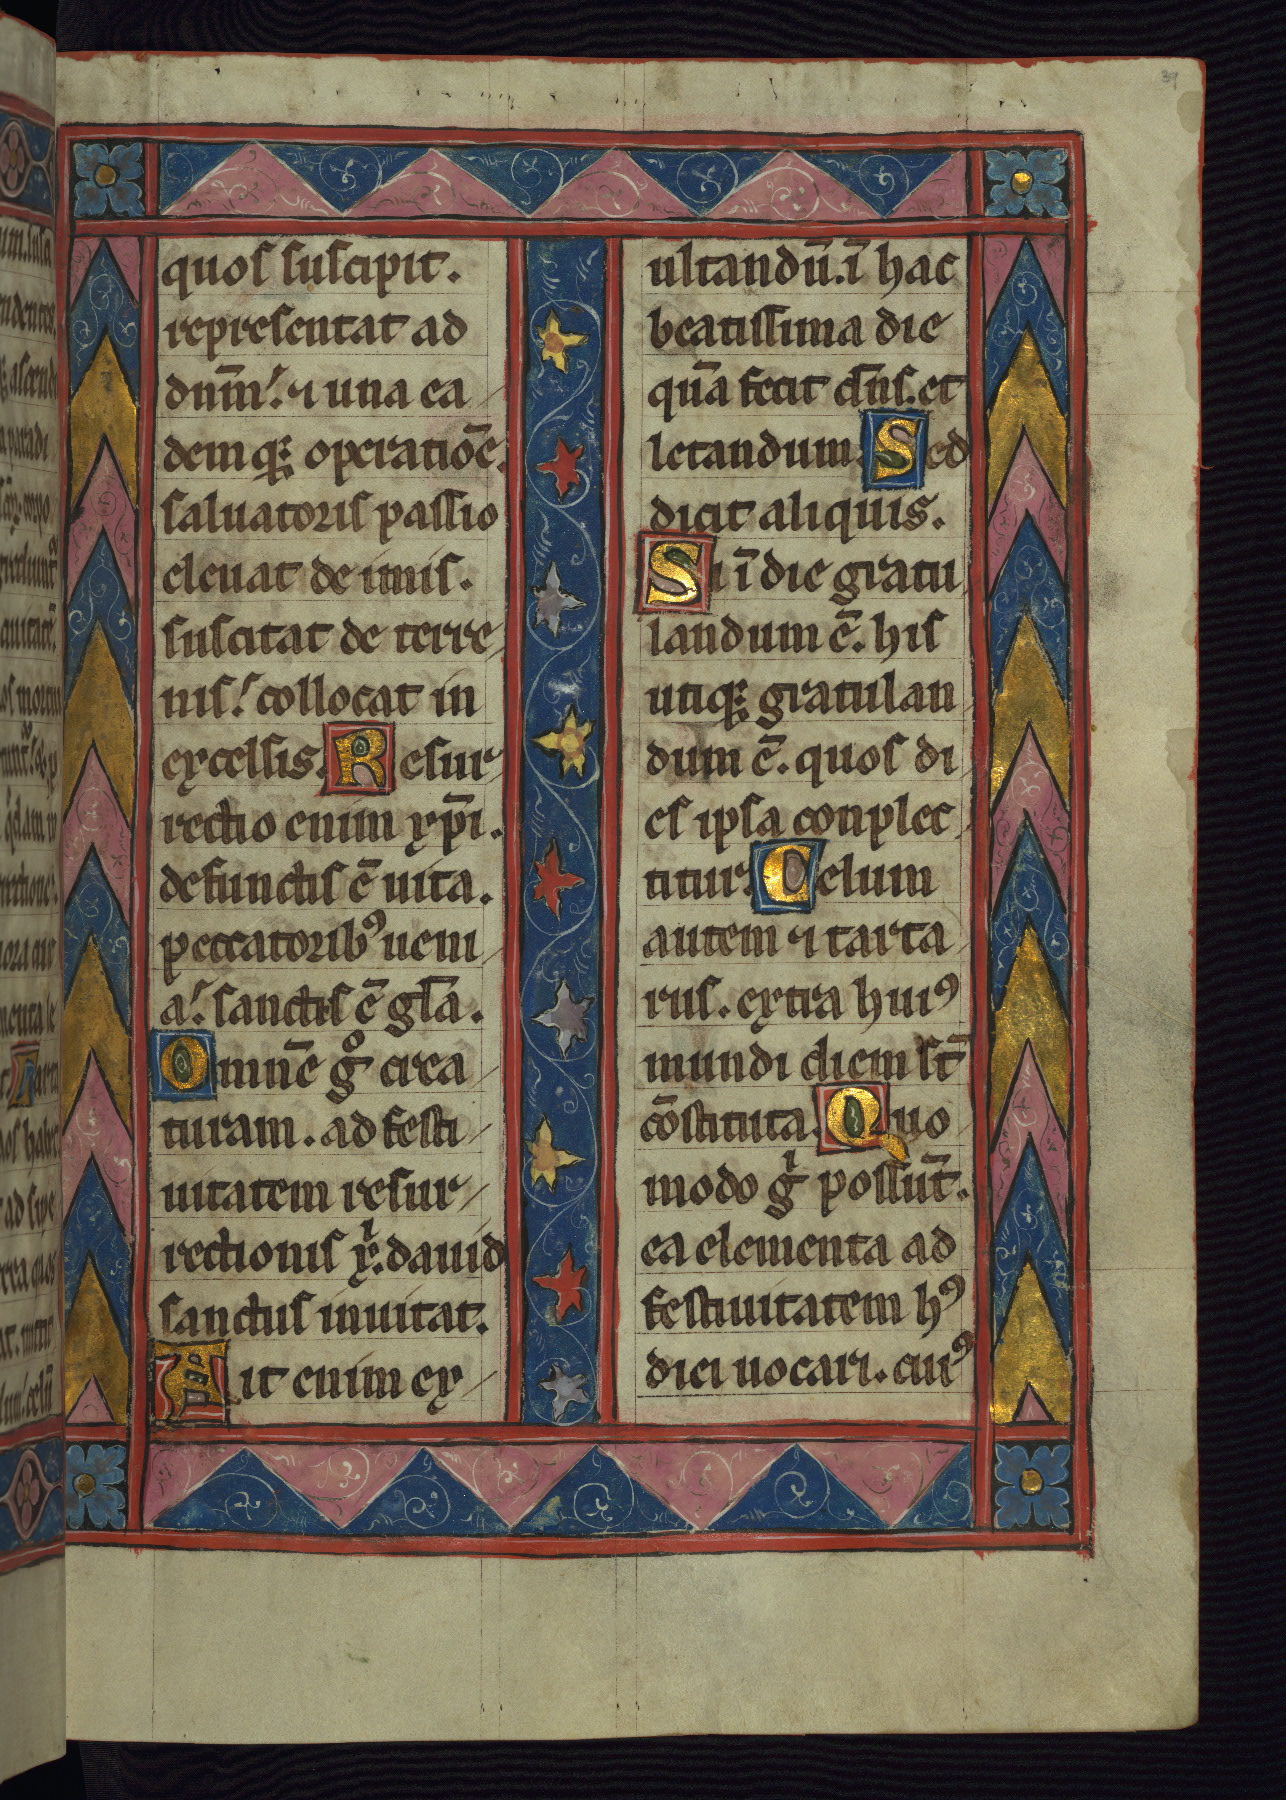 39
quos suscipit.
representat ad
dnm̄. ⁊ una ea
demq; operatiōe
saluatoris passio
eleuat de imis.
suscitat de terre
nis. collocat in
excelsis. Resur
rectio enim xp̄i.
defunctis ē uita.
peccatorib⁹ ueni
a. sanctis ē gl̄a.
Omnē gͦ crea
turam. ad festi
uitatem resur
rectionis xⁱ. dauid
sanctus inuitat.
Ait enim ex
ultandū. ī hac
beatissima die
quā fecit dn̄s. et
letandum. Sed
dicit aliquis.
Si ī die gratu
landum ē. his
utiq; gratulan
dum ē. quos di
es ipsa conplec
titur. Celum
autem ⁊ tarta
rus. extra hui⁹
mundi diem st̄
cōstituta. Quo
modo gⁱ possūt.
ea elementa ad
festiuitatem h⁹
diei uocari. cui⁹